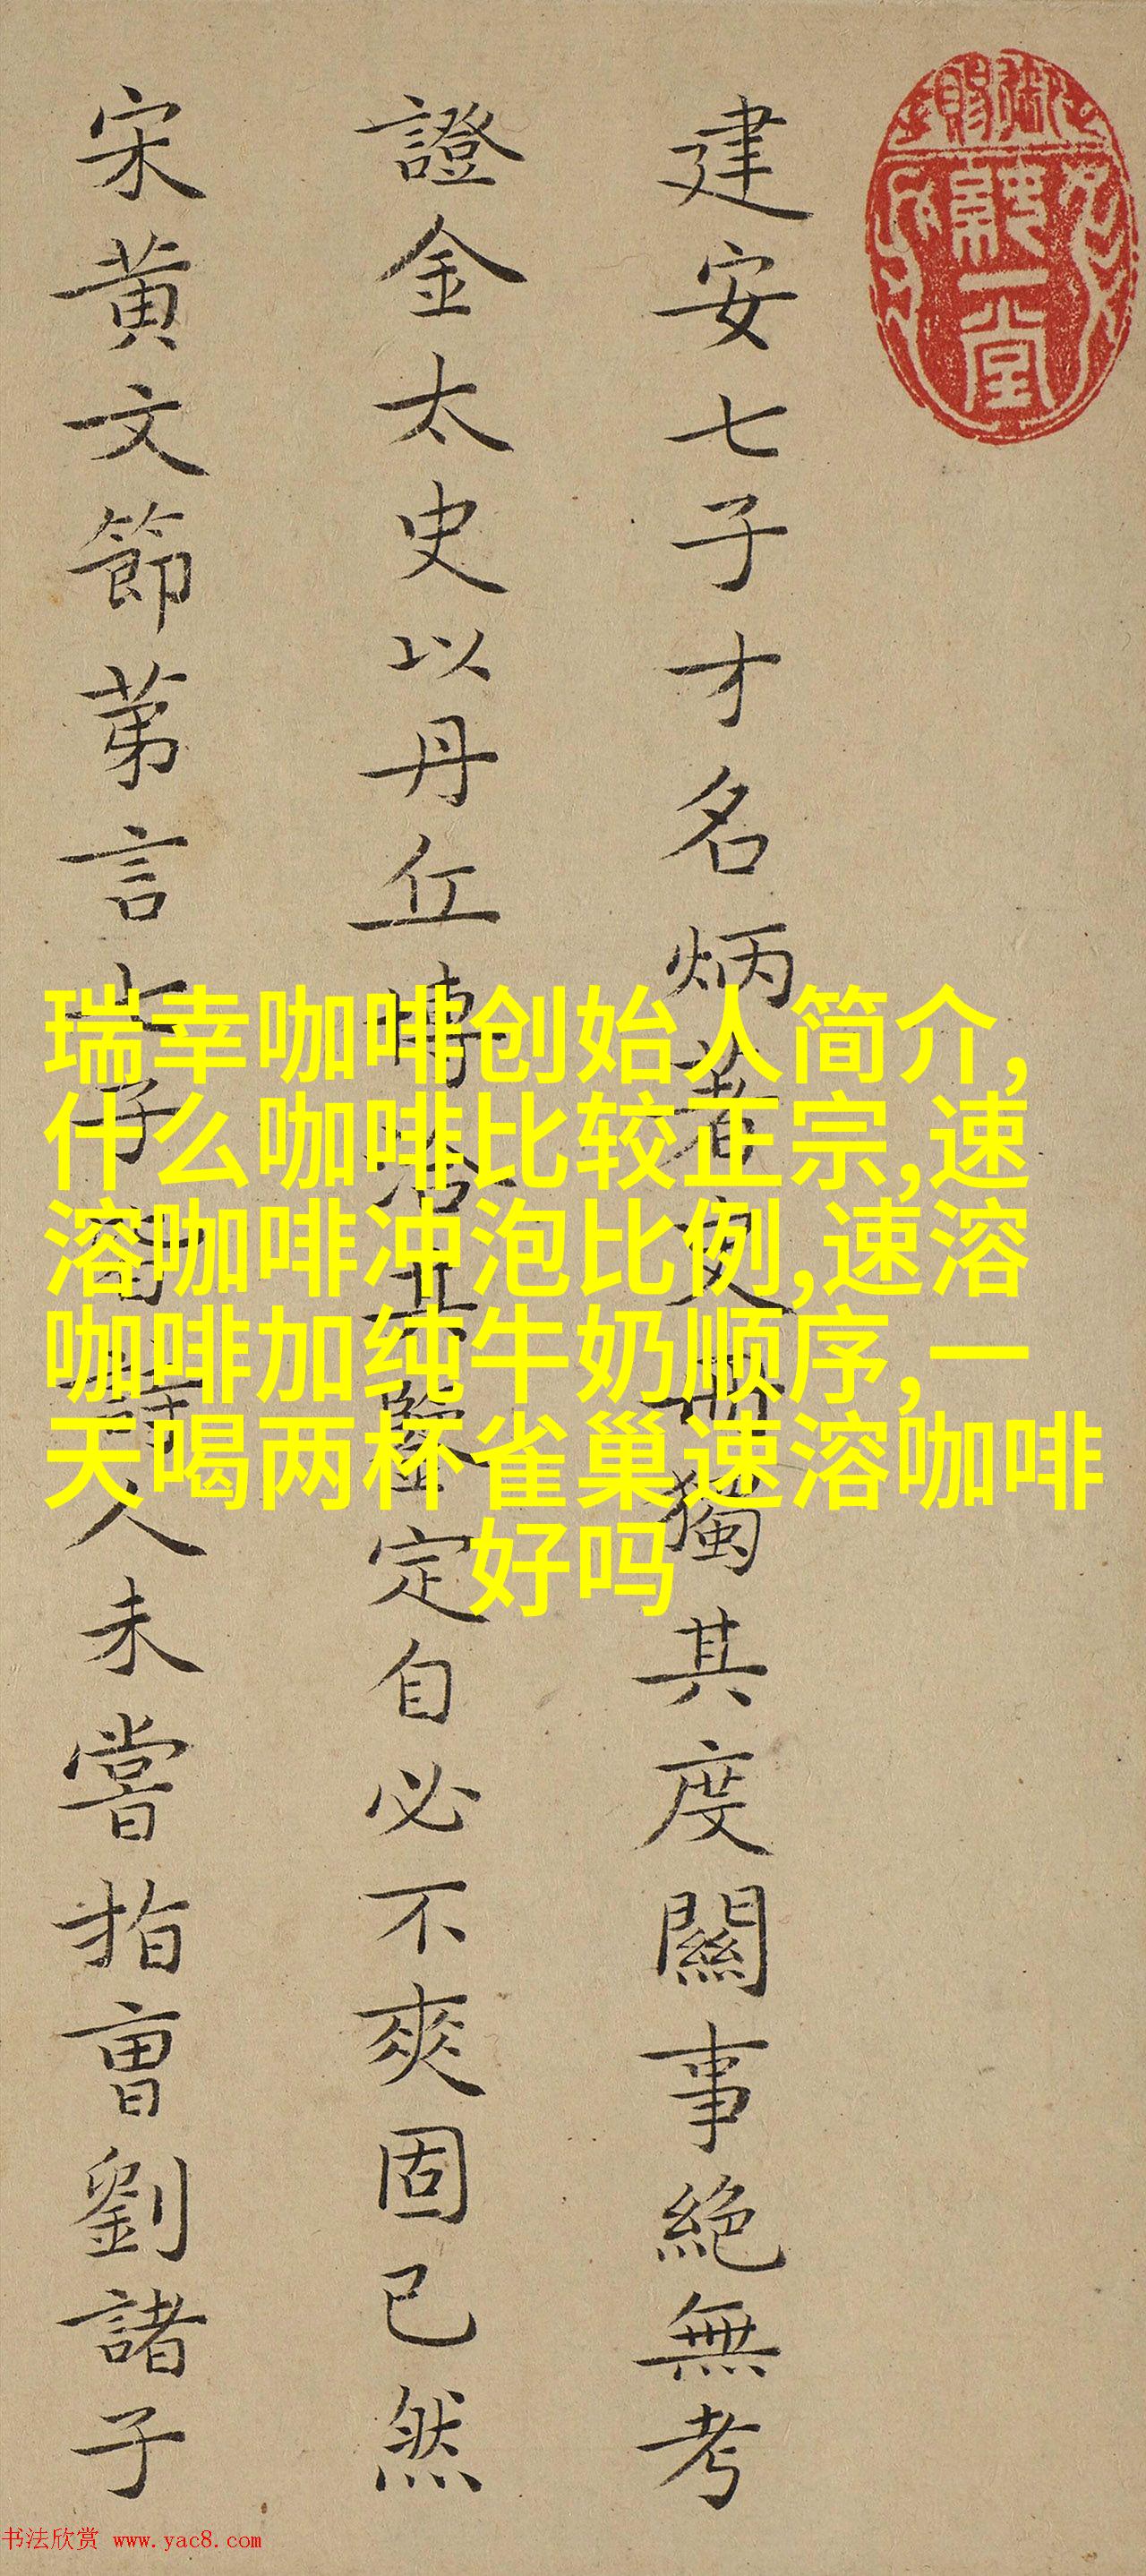 建安七子才名炳著史冊獨其度關事絕無考
證金太史以丹丘博洽共鑒定自必不爽固已然
宋黃文節苐言七子閣詩人未嘗指曹劉諸子
瑞幸咖啡创始人简介,
什么咖啡比较正宗,速
溶咖啡冲泡比例,速溶
咖啡加纯牛奶顺序,一
天喝两杯雀巢速溶咖啡
好吗
书法欣赏 www.yac8.com